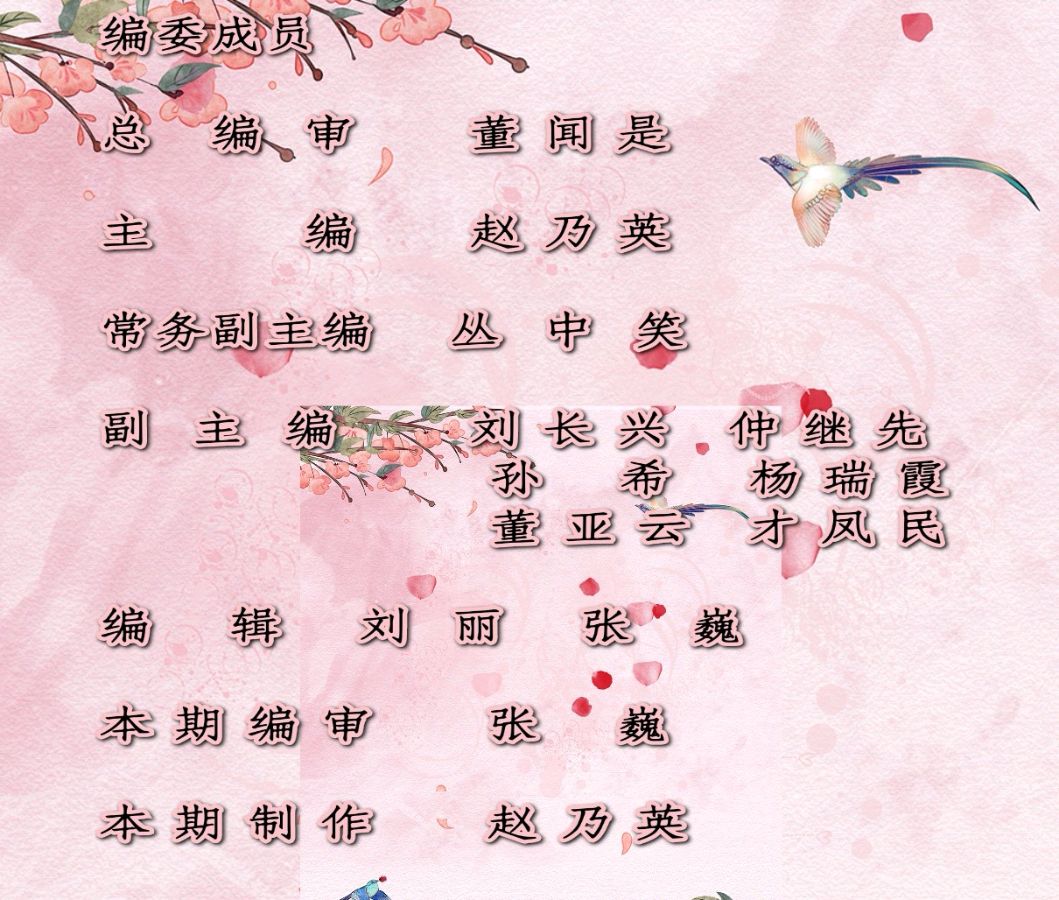 编委成员
总 编 审 董 闻 是
主 编 赵 乃 英
常务副主编 丛 中 笑
副 主 编 刘 长 兴 仲 继 先
孙 希 杨 瑞 霞
董 亚 云 才 凤 民
编 辑 刘 丽 张 巍
本 期 编 审 张 巍
本 期 制 作 赵 乃 英